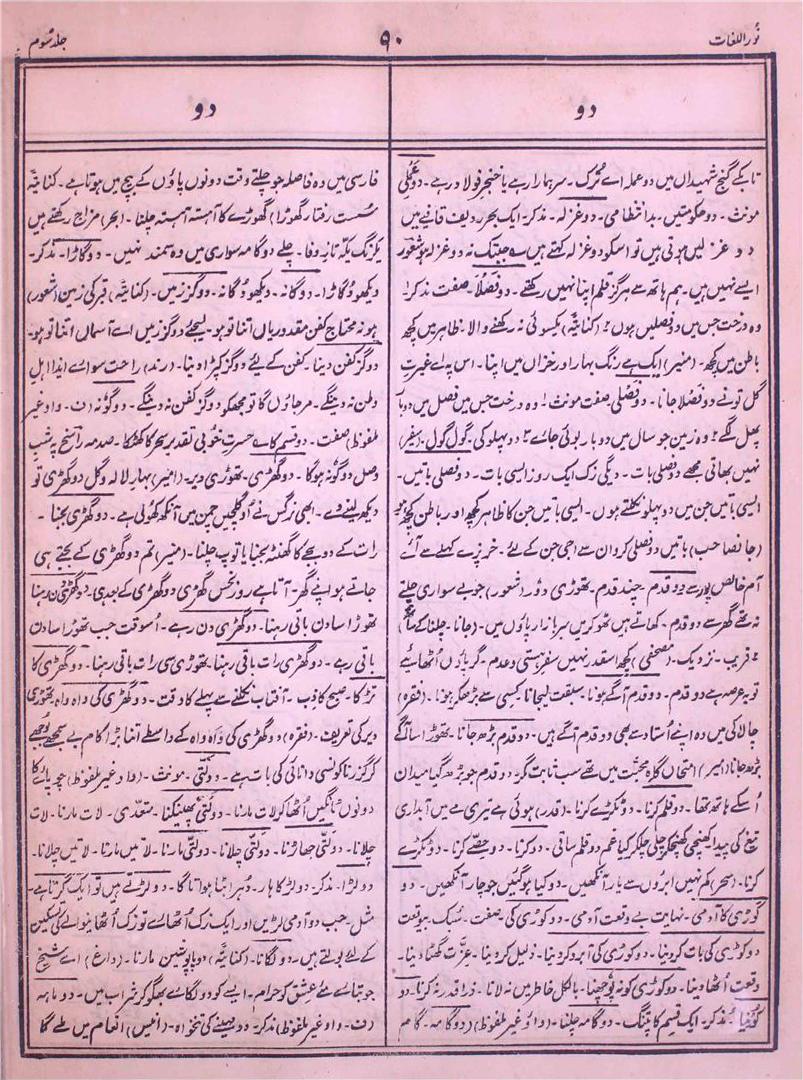 نُوراللغات
۹۰
جلد سُوم
دو
دو
تا کے گنج شہیداں میں دو عملہ اے تُرک۔ سر ہمارا رہے یا خنجر فولاد رہے۔ دو عملی
مونث۔ دو حکومتیں۔ بدانتظامی۔ دو غزلہ۔ مذکر۔ ایک بحر ردیف قافیے میں
دو غزلیں ہوتی ہیں تو اسکو دو غزلہ کہتے ہیں ؎ جبتک نہ دو غزلہ ہو شعور
ایسے نہیں ہیں۔ ہم ہاتھ سے ہرگز قلم اپنا نہیں رکھتے۔ دو فصلا۔ صفت مذکر ۱
وہ درخت جس میں دو فصلیں ہوں ۲ (کنایتہً) یکسوئی نہ رکھنے والا۔ ظاہر میں کچھ
باطن میں کچھ۔ (منیر) ایک ہے رنگ بہار اور خزاں میں اپنا۔ اس پہ اے غیرتِ
گل تو نے دو فصلا جانا۔ دو فصلی صفت مونث ۱ وہ درخت جس میں فصل میں دو بار
پھل لگے ۲ وہ زمین جو سال میں دو بار بوئی جائے ۳ دو پہلو کی۔ گول گول۔ (سفر)
نہیں بھاتی مجھے دو فصلی بات۔ دیگی زک ایک روز ایسی بات۔ دو فصلی باتیں۔
ایسی باتیں جن میں دو پہلو نکلتے ہوں۔ ایسی باتیں جن کا ظاہر کچھ اور باطن کچھ ہو
(جانصاحب) باتیں دو فصلی کر دان سے اجی جن کے لئے۔ خربزے کھلے سے آئے
آم خالص پور سے دو قدم۔ چند قدم۔ تھوڑی دُور (شعور) جو بے سواری چلتے
نہ تھے گھر سے دو قدم۔ کھاتے ہیں ٹھوکریں سر بازار پاؤں میں۔ (جانا۔ چلنا کے ساتھ)
۲ قریب۔ نزدیک۔ (مصحفی) کچھ اسقدر نہیں سفر ہستی و عدم۔ گر پاؤں اُٹھائیے
تو یہ عرصہ ہے دو قدم۔ دو قدم آگے ہونا۔ سبقت لیجانا۔ کسی سے بڑھکر ہونا۔ (فقرہ)
چالاکی میں وہ اپنے اُستاد سے بھی دو قدم آگے ہیں۔ دو قدم بڑھ جانا۔ تھوڑا سا آگے
بڑھ جانا (میر) امتحاں گاہ محبت میں تھے سب ثابت گر۔ دو قدم جو بڑھ گیا میدان
اُسکے ہاتھ تھا۔ دو قلم کرنا۔ دو ٹکڑے کرنا۔ (قدر) ہوئی ہے تیری مے میں آبداری
تیغ کی پیدا کھنچی کھنچکر چلی چلکر کیا غم دو قلم ساقی۔ دو کرنا۔ دو حصے کرنا۔ دو ٹکڑے
کرنا۔ (سحر) کم نہیں ابروں سے یار آنکھیں۔ دو کیا ہو گئیں جو چار آنکھیں۔ دو
کوڑی کا آدمی۔ نہایت بے وقعت آدمی۔ دو کوڑی کی۔ صفت۔ سُبک۔ بیوقعت
دو کوڑی کی بات کر دینا۔ دو کوڑی کی آبرو کر دینا۔ ذلیل کر دینا۔ عزت گھٹا دینا۔
وقعت اُٹھا دینا۔ دو کوڑی کو نہ پوچھنا۔ بالکل خاطر میں نہ لانا۔ ذرا قدر نہ کرنا۔ دو
مذکر۔ ایک قسم کا پتنگ۔ دو گامہ چلنا۔ (واؤ غیر ملفوظ) (دو گامہ۔ گام
فارسی میں وہ فاصلہ جو چلتے وقت دونوں پاؤں کے بیچ میں ہوتا ہے۔ کنایتہً
سُست رفتار گھوڑا) گھوڑے کا آہستہ آہستہ چلنا۔ (بحر) مزاج رکھتے ہیں
یکرنگ یکہ تاز وفا۔ چلے دو گامہ سواری میں وہ سمند نہیں۔ دو گاڑا۔ مذکر۔
دیکھو دُگاڑا۔ دو گانہ۔ دیکھو دُگانہ۔ دو گز زمیں۔ (کنایتہً) قبر کی زمین (شعور)
ہو نہ محتاج کفن مقدور یاں اتنا تو ہو۔ لیجئے دو گز زمیں اے آسماں اتنا تو ہو۔
دو گز کفن دینا۔ کفن کے لئے دو گز کپڑا دینا۔ (رند) راحت سوا اے ایذا اہل
وطن نہ دینگے۔ مرجاؤں گا تو مجھکو دو گز کفن نہ دینگے۔ دو گونہ (ف۔ واو غیر
ملفوظ) صفت۔ دو قسم کا ؎ حسرت خوبیِ تقدیر سحر کا کھٹکا۔ صدمہ راسخ پہ شب
وصل دو گونہ ہوگا۔ دو گھڑی۔ تھوڑی دیر۔ (منیر) بہار لالہ و گل دو گھڑی تو
دیکھ لینے دے۔ ابھی نرگس نے او گلچیں چمن میں آنکھ کھولی ہے۔ دو گھڑی بجنا۔
رات کے دو بجے کا گھنٹہ بجنا یا توپ چلنا۔ (منیر) تم دو گھڑی کے بجتے ہی
جاتے ہو اپنے گھر۔ آتا ہے روز نحس گھڑی دو گھڑی کے بعد ہی۔ دو گھڑی دن رہنا
تھوڑا سا دن باقی رہنا۔ دو گھڑی دن رہے۔ اُسوقت جب تھوڑا سا دن
باقی رہے۔ دو گھڑی رات باقی رہنا۔ تھوڑی سی رات باقی رہنا۔ دو گھڑی کا
تڑکا۔ صبح کاذب۔ آفتاب نکلنے سے پہلے کا وقت۔ دو گھڑی کی واہ واہ۔ تھوڑی
دیر کی تعریف۔ (فقرہ) دو گھڑی کی واہ واہ کے واسطے اتنا بڑا کام بے سمجھے بوجھے
کر گزرنا کونسی دانائی کی بات ہے۔ دولتّی۔ مونث۔ (واو غیر ملفوظ) چوپائے کا
دونوں ٹانگیں اُٹھا کر لات مارنا۔ دولتّی پھینکنا۔ متعدی۔ لات مارنا۔ لات
چلانا۔ دولتّی جھاڑنا۔ دولتّی چلانا۔ دولتّی مارنا۔ لاتیں مارنا۔ لاتیں چلانا۔
دو لڑا۔ مذکر۔ دو لڑ کا ہار۔ دُہرا بٹا ہوا تاگا۔ دو لڑتے ہیں تو ایک گرتا ہے۔
مثل۔ جب دو آدمی لڑیں اور ایک زک اُٹھائے تو زک اُٹھانیوالے کی تسکین
کے لئے بولتے ہیں۔ دو لگانا۔ (کنایتہً) دو پاپوشیں مارنا۔ (داغ) اے شیخ
جو بتائے مے عشق کو حرام۔ ایسے کو دو لگائے بھگو کر شراب میں۔ دو ماہہ
(ف۔ واو غیر ملفوظ) مذکر۔ دو مہینے کی تنخواہ۔ (انیس) انعام میں ملے گا